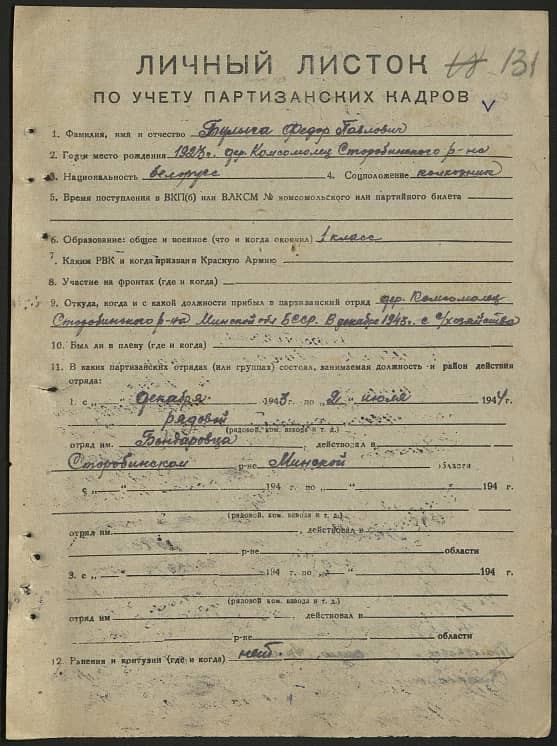 ЛИЧНЫЙ ЛИСТОК 131
ПО УЧЕТУ ПАРТИЗАНСКИХ КАДРОВ
1. Фамилия, имя и отчество Булыга Федор Павлович
2. Год и место рождения 1923 г. дер. Комсомолец Старобинского р-на
3. Национальность белорус 4. Соцположение колхозник
5. Время поступления в ВКП(б) или ВЛКСМ № комсомольского или партийного билета
6. Образование: общее и военное (что и когда окончил) 1 класс
7. Каким РВК и когда призван в Красную Армию
8. Участие на фронтах (где и когда)
9. Откуда, когда и с какой должности прибыл в партизанский отряд дер. Комсомолец
Старобинского р-на Минской обл БССР. В декабре 1943 г. с с/хозяйства
10. Был ли в плену (где и когда)
11. В каких партизанских отрядах (или группах) состоял, занимаемая должность и район действия
отряда:
1. с „ “ декабря 1943 г. по „2“ июля 1944 г.
рядовой
(рядовой, ком. взвода и т. д.)
отряд им. Бондаровца, действовал в
Старобинском р-не Минской области
с „ “ 194 г. по „ “ 194 г.
(рядовой, ком. взвода и т. д.)
отряд им. , действовал в
р-не области
3. с „ “ 194 г. по „ “ 194 г.
(рядовой, ком. взвода и т. д.)
отряд им , действовал в
р-не области
12. Ранения и контузии (где и когда) нет.